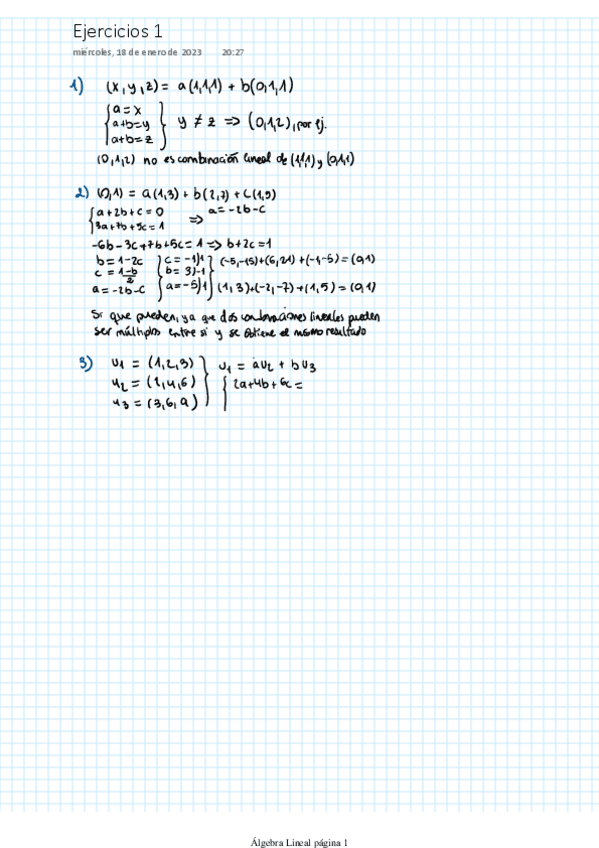 Ejercicios 1
miércoles, 18 de enero de 2023 20:27
1) (x, y, z) = a(1,1,1) + b(0,1,1)
{a = x
a+b=y } y ≠ z => (0,1,2), por ej.
a+b=z
(0,1,2) no es combinación lineal de (1,1,1) y (0,1,1)
2) (0,1) = a(1,3) + b(2,7) + c(1,5)
{a+2b+c = 0 => a = -2b-c
3a+7b+5c = 1
-6b-3c+7b+5c = 1 => b+2c = 1
b = 1-2c } c = -1)1 } (-5,-15)+(6,21)+(-1,-5) = (0,1)
c = 1-b/2 } b = 3)-1
a = -2b-c } a = -5)1 } (1,3)+(-2,-7)+(1,5) = (0,1)
Si que pueden, ya que dos combinaciones lineales pueden
ser múltiplos entre si y se obtiene el mismo resultado
3) u1 = (1,2,3) } u1 = au2 + bu3
u2 = (2,4,6) { 2a+4b+6c =
u3 = (3,6,9)
Álgebra Lineal página 1